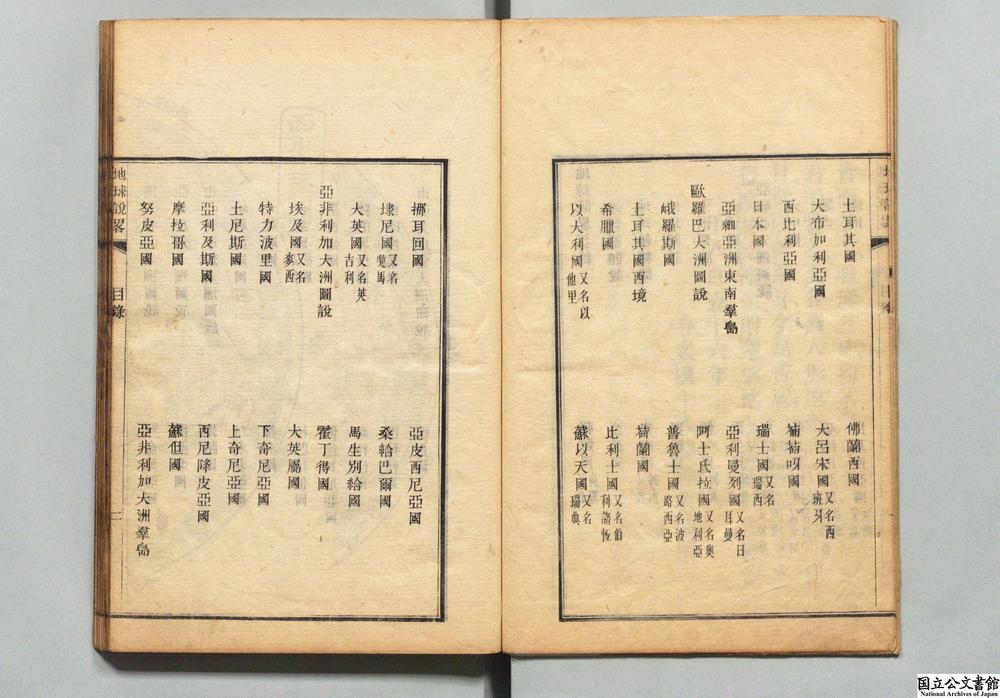 土耳其國
大布加利亞國
西比利亞國
日本國
亞細亞洲東南羣島
歐羅巴大洲圖說
峨羅斯國
土耳其國西境
希臘國
以大利國又名以他里
佛蘭西國
大呂宋國又名西班牙
葡萄呀國
瑞士國又名瑞西
亞利曼列國又名日耳曼
阿士氐拉國又名奧地利亞
普魯士國又名波路西亞
荷蘭國
比利士國又名伯利諸恆
蘇以天國又名瑞典
挪耳回國
埭尼國又名嗹馬
大英國又名英吉利
亞非利加大洲圖說
埃及國又名麥西
特力波里國
土尼斯國
亞利及斯國
摩拉哥國
努皮亞國
亞皮西尼亞國
桑給巴爾國
馬生別給國
霍丁得國
大英屬國
下奇尼亞國
上奇尼亞國
西尼降皮亞國
蘇但國
亞非利加大洲羣島
地球說畧
目錄
二
国立公文書館
National Archives of Japan